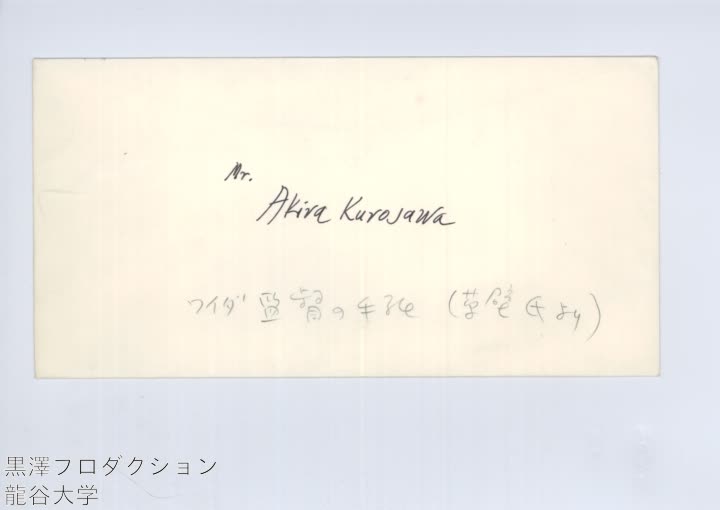 Mr.
Akira Kurosawa
ワイダ監督の手紙 (草壁氏より)
黒澤フロダクション
龍谷大学